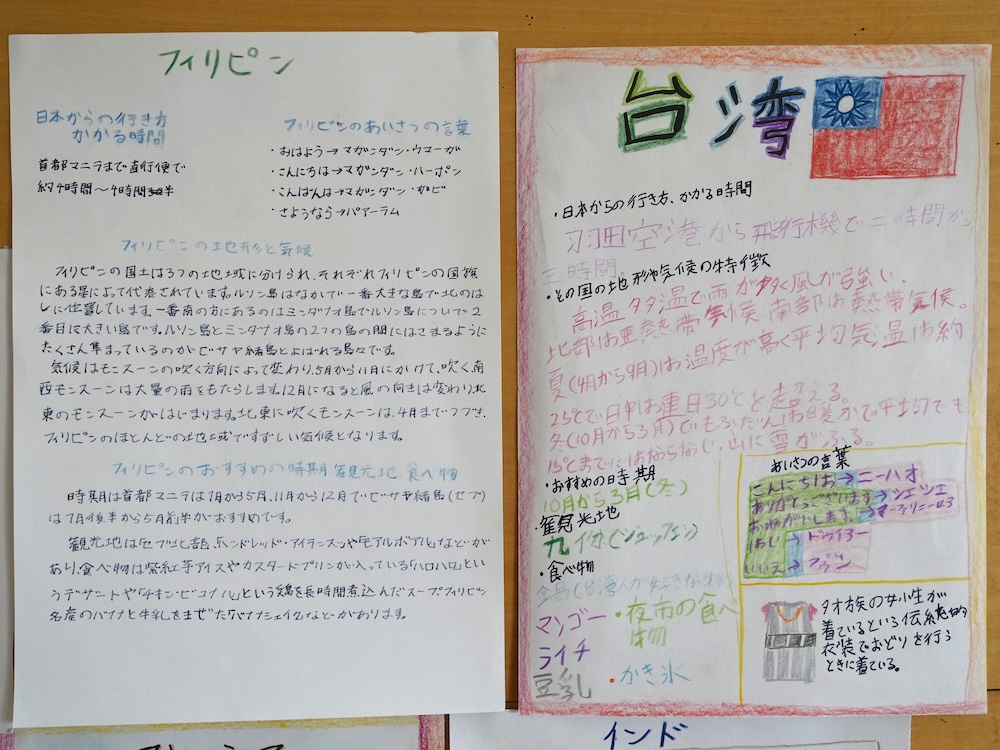 フィリピン
日本からの行き方
かかる時間
首都マニラまで直行便で
約4時間〜4時間半
フィリピンのあいさつの言葉
・おはよう→マガンダン・ウマーガ
・こんにちは→マガンダン・ハーポン
・こんばんは→マガンダン・ガビ
・さようなら→パアーラム
フィリピンの地形と気候
フィリピンの国土は3つの地域に分けられ、それぞれフィリピンの国旗
にある星によって代表されています。ルソン島はなかで一番大きな島で北のは
しに位置しています。一番南の方にあるのはミンダナオ島でルソン島についで2
番目に大きい島です。ルソン島とミンダナオ島の2つの島の間にはさまるように
たくさん集まっているのがビサヤ緒島とよばれる島々です。
気候はモンスーンの吹く方向によって変わり、5月から11月にかけて、吹く南
西モンスーンは大量の雨をもたらします。12月になると風の向きは変わり、北
東のモンスーンがはじまります。北東に吹くモンスーンは、4月までつづき、
フィリピンのほとんどの地域ですずしい気候となります。
フィリピンのおすすめの時期、観光地、食べ物
時期は首都マニラは1月から5月、11月から12月でビサヤ緒島(セブ)
は7月後半から5月前半がおすすめです。
観光地は「セブ」と
ハンドレッド・アイランズ
などが
あり、食べ物は紫紅芋アイスやカスタードプリンが入っている「ハロハロ」とい
うデザートや
という鶏を長時間煮込んだスープフィリピン
名産のバナナと牛乳をまぜた「バナナシェイク」などがあります。
台湾
・日本からの行き方、かかる時間
羽田空港から飛行機で二時間から
三時間。
・その国の地形や気候の特徴
高温多湿で雨が多く風が強い。
北部は亜熱帯気候、南部は熱帯気候。
夏(4月から9月)は温度が高く平均気温は約
25℃で日中は連日30℃を超える。
冬(10月から3月)でもふだんは暖かで平均でも
15℃までにはならない。山に雪がふる。
・おすすめの時期
10月から3月(冬)
・観光地
九份(ジュウフェン)
・食べ物
(台湾人が好きな物)
マンゴー
ライチ
豆乳
・夜市の食べ
物
・かき氷
あいさつの言葉
こんにちは→ニーハオ
ありがとうございます→シェシェ
おねがいします。→
はい→
いいえ→
タオ族の女性が
着ているという伝統的
衣装でおどりを行う
ときに着ている。
インド